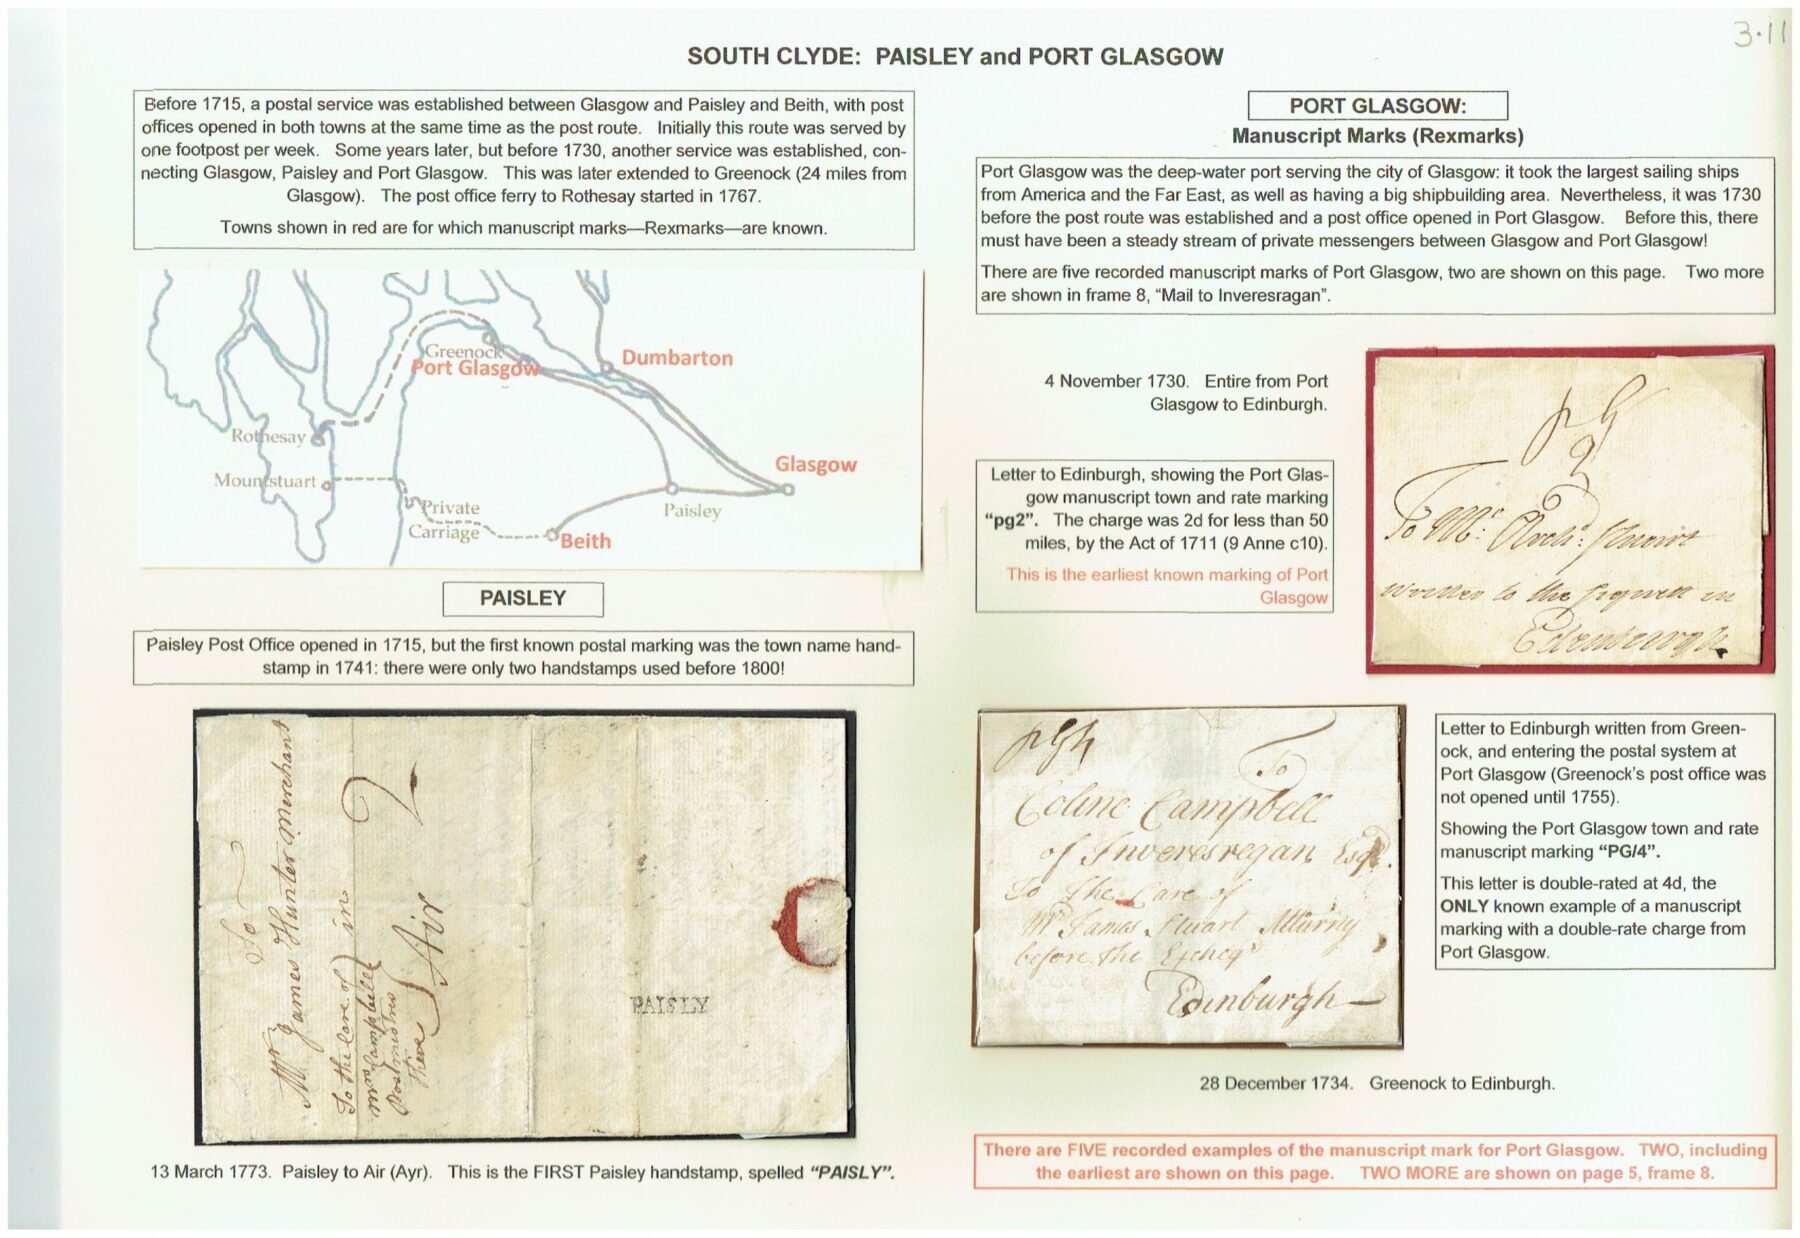 3·11
SOUTH CLYDE: PAISLEY and PORT GLASGOW
Before 1715, a postal service was established between Glasgow and Paisley and Beith, with post
offices opened in both towns at the same time as the post route. Initially this route was served by
one footpost per week. Some years later, but before 1730, another service was established, con-
necting Glasgow, Paisley and Port Glasgow. This was later extended to Greenock (24 miles from
Glasgow). The post office ferry to Rothesay started in 1767.
Towns shown in red are for which manuscript marks—Rexmarks—are known.
Greenock
Port Glasgow
Dumbarton
Rothesay
Glasgow
Mountstuart
Private
Carriage
Paisley
Beith
PAISLEY
Paisley Post Office opened in 1715, but the first known postal marking was the town name hand-
stamp in 1741: there were only two handstamps used before 1800!
To
Mr James Hunter Merchant
in
To the Care of
Mrs Campbell
Postmistris
there
Air
2
PAISLY
13 March 1773. Paisley to Air (Ayr). This is the FIRST Paisley handstamp, spelled "PAISLY".
PORT GLASGOW:
Manuscript Marks (Rexmarks)
Port Glasgow was the deep-water port serving the city of Glasgow: it took the largest sailing ships
from America and the Far East, as well as having a big shipbuilding area. Nevertheless, it was 1730
before the post route was established and a post office opened in Port Glasgow. Before this, there
must have been a steady stream of private messengers between Glasgow and Port Glasgow!
There are five recorded manuscript marks of Port Glasgow, two are shown on this page. Two more
are shown in frame 8, "Mail to Inveresragan".
4 November 1730. Entire from Port
Glasgow to Edinburgh.
Letter to Edinburgh, showing the Port Glas-
gow manuscript town and rate marking
"pg2". The charge was 2d for less than 50
miles, by the Act of 1711 (9 Anne c10).
This is the earliest known marking of Port
Glasgow
pg
2
To Mr: Archd: Stuart
writter to the signett in
Edenburgh
pG4
To
Coline Campbell
of Inveresregan Esqr.
To The Care of
Mr James Stuart Atturny
before the Excheqr
Edinburgh
Letter to Edinburgh written from Green-
ock, and entering the postal system at
Port Glasgow (Greenock's post office was
not opened until 1755).
Showing the Port Glasgow town and rate
manuscript marking "PG/4".
This letter is double-rated at 4d, the
ONLY known example of a manuscript
marking with a double-rate charge from
Port Glasgow.
28 December 1734. Greenock to Edinburgh.
There are FIVE recorded examples of the manuscript mark for Port Glasgow. TWO, including
the earliest are shown on this page. TWO MORE are shown on page 5, frame 8.